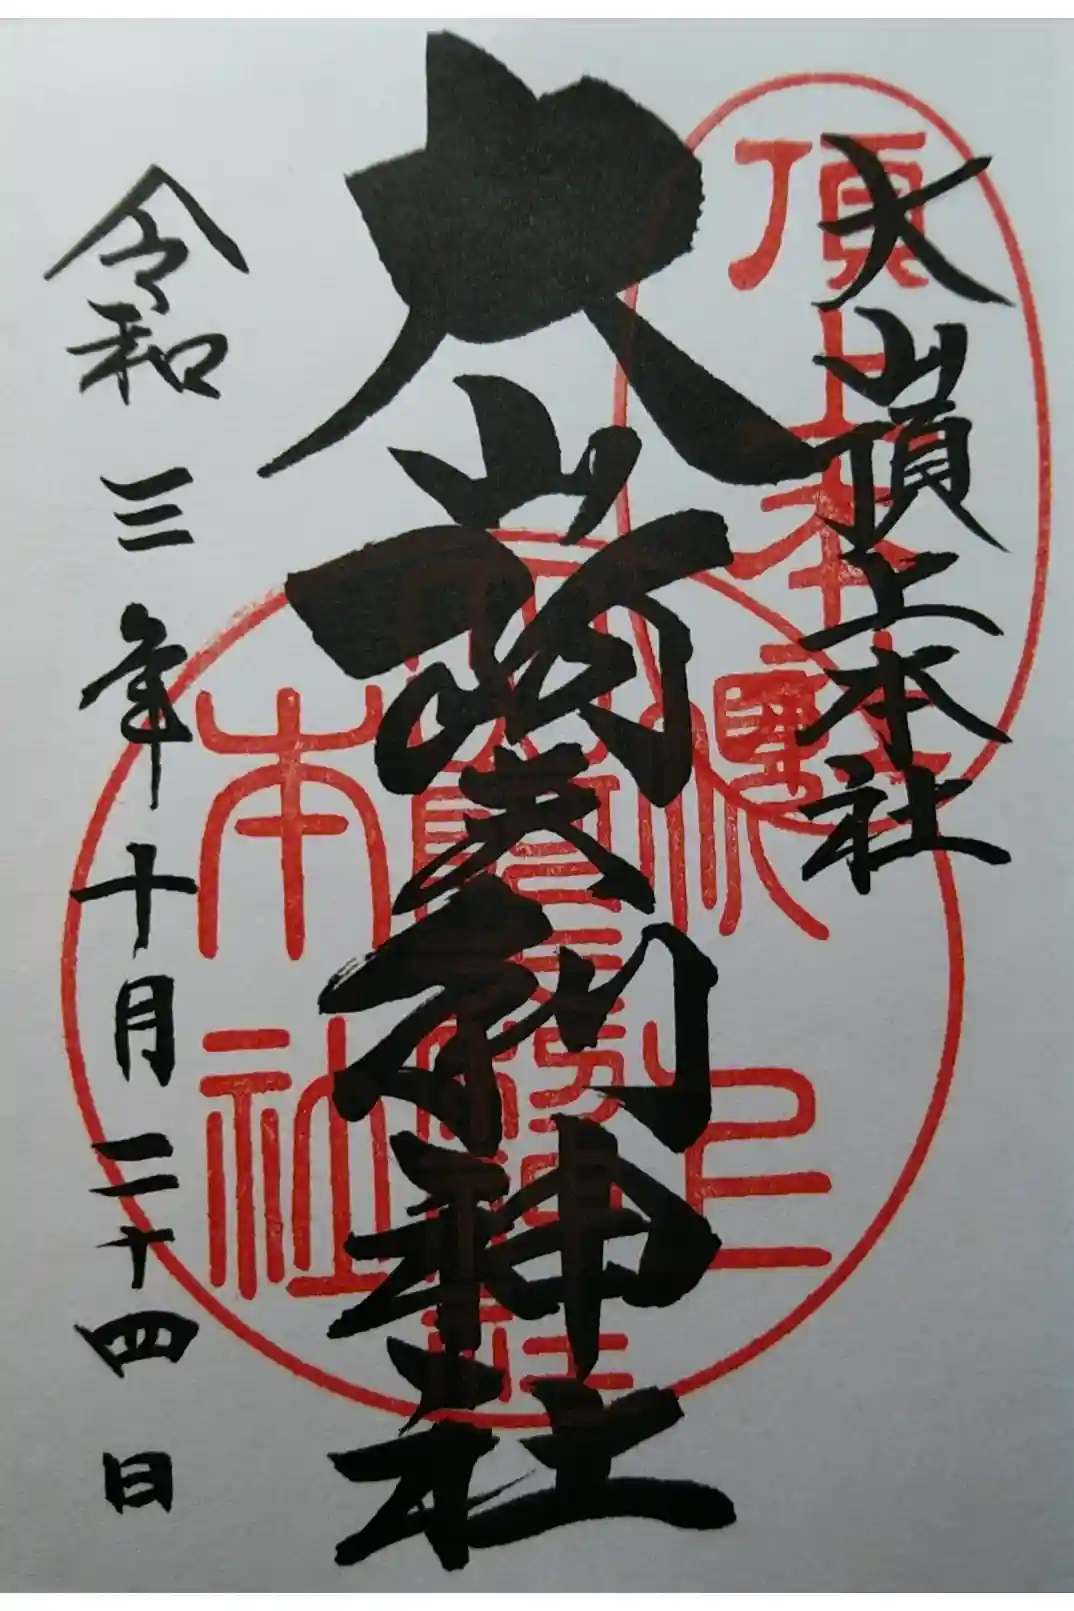 大山頂上本社
大山阿夫利神社
令和三年十月二十四日
頂上本社
頂上
本社